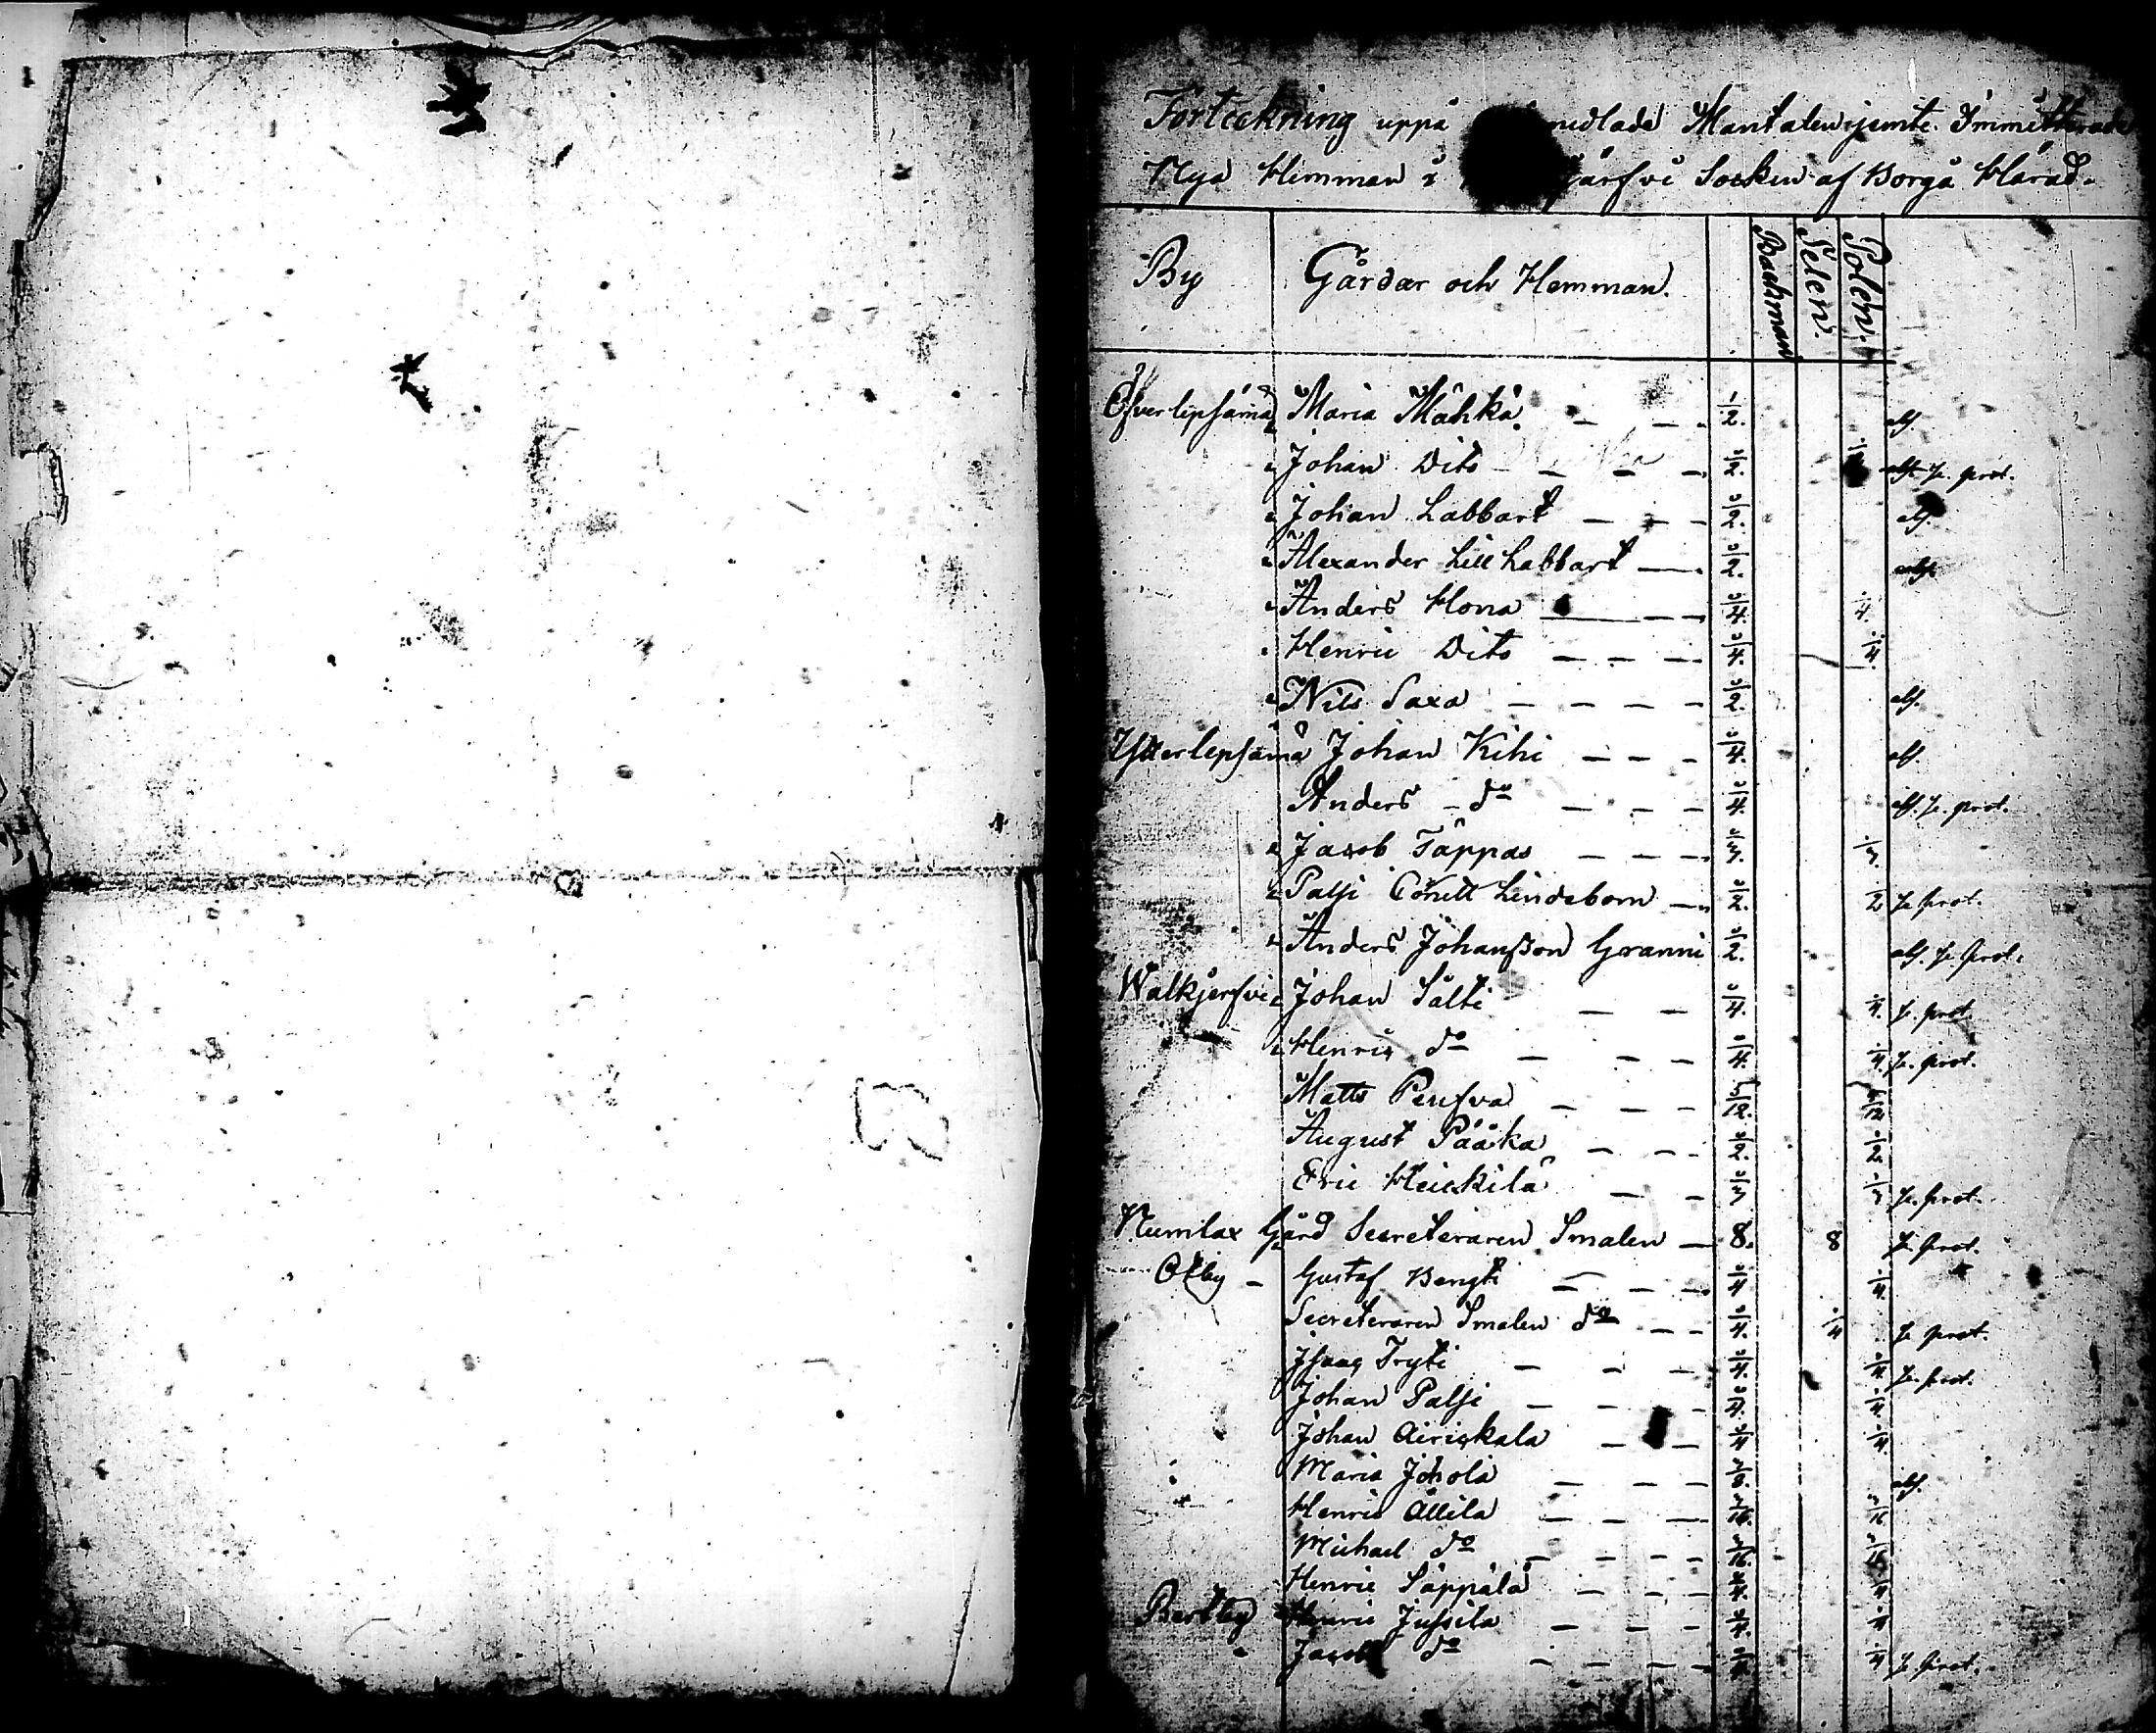 Förteckning uppå nedlade Mantalen jemte Immitterade
Nya Hemman i järfvi Socken af Borgå Härad.
By Gårdar och Hemman. Backman Selen. Polen.
Öfverlepsämä Maria Mähkä 1/2. abs.
Johan Dito 1/2. abs. p. prot.
Johan Labbart 1/2. abs.
Alexander Lill Labbart 1/2. abs.
Anders Hona 1/4. 1/4.
Henric Dito 1/4. 1/4.
Nils Saxa 1/2. abs.
Ytterlepsämä Johan Kihi 1/4. abs.
Anders do 1/4. abs. p. prot.
Jacob Täppas 1/3. 1/3.
Palji Lindebom 1/2. 1/2 p. prot.
Anders Johansson Granni 1/2. abs. p. prot.
Walkjerfvi Johan Sälti 1/4. 1/4. p. prot
Henric do 1/4. 1/4. p. prot.
Matts 5/12. 5/12
August Pääka 1/2. 1/2.
Eric Heickilä 1/3 1/3 p. prot.
Numlax Gård Secreteraren Smalen 8. 8 p. prot.
Olby Gustaf Bengts 1/4 1/4.
Secreteraren Smalen do 1/4. 1/4 p. prot.
Isaac Tryti 1/4. 1/4. p. prot.
Johan Palji 1/4. 1/4
Johan Airickala 1/4 1/4.
Maria Johola 3/8. abs.
Henric Allila 3/16. 3/16
Michael do 3/16. 3/16
Henric Säppälä 1/4. 1/4
Bertby Henric Jussila 1/4. 1/4
Jacob do 1/4. 1/4 p. prot.